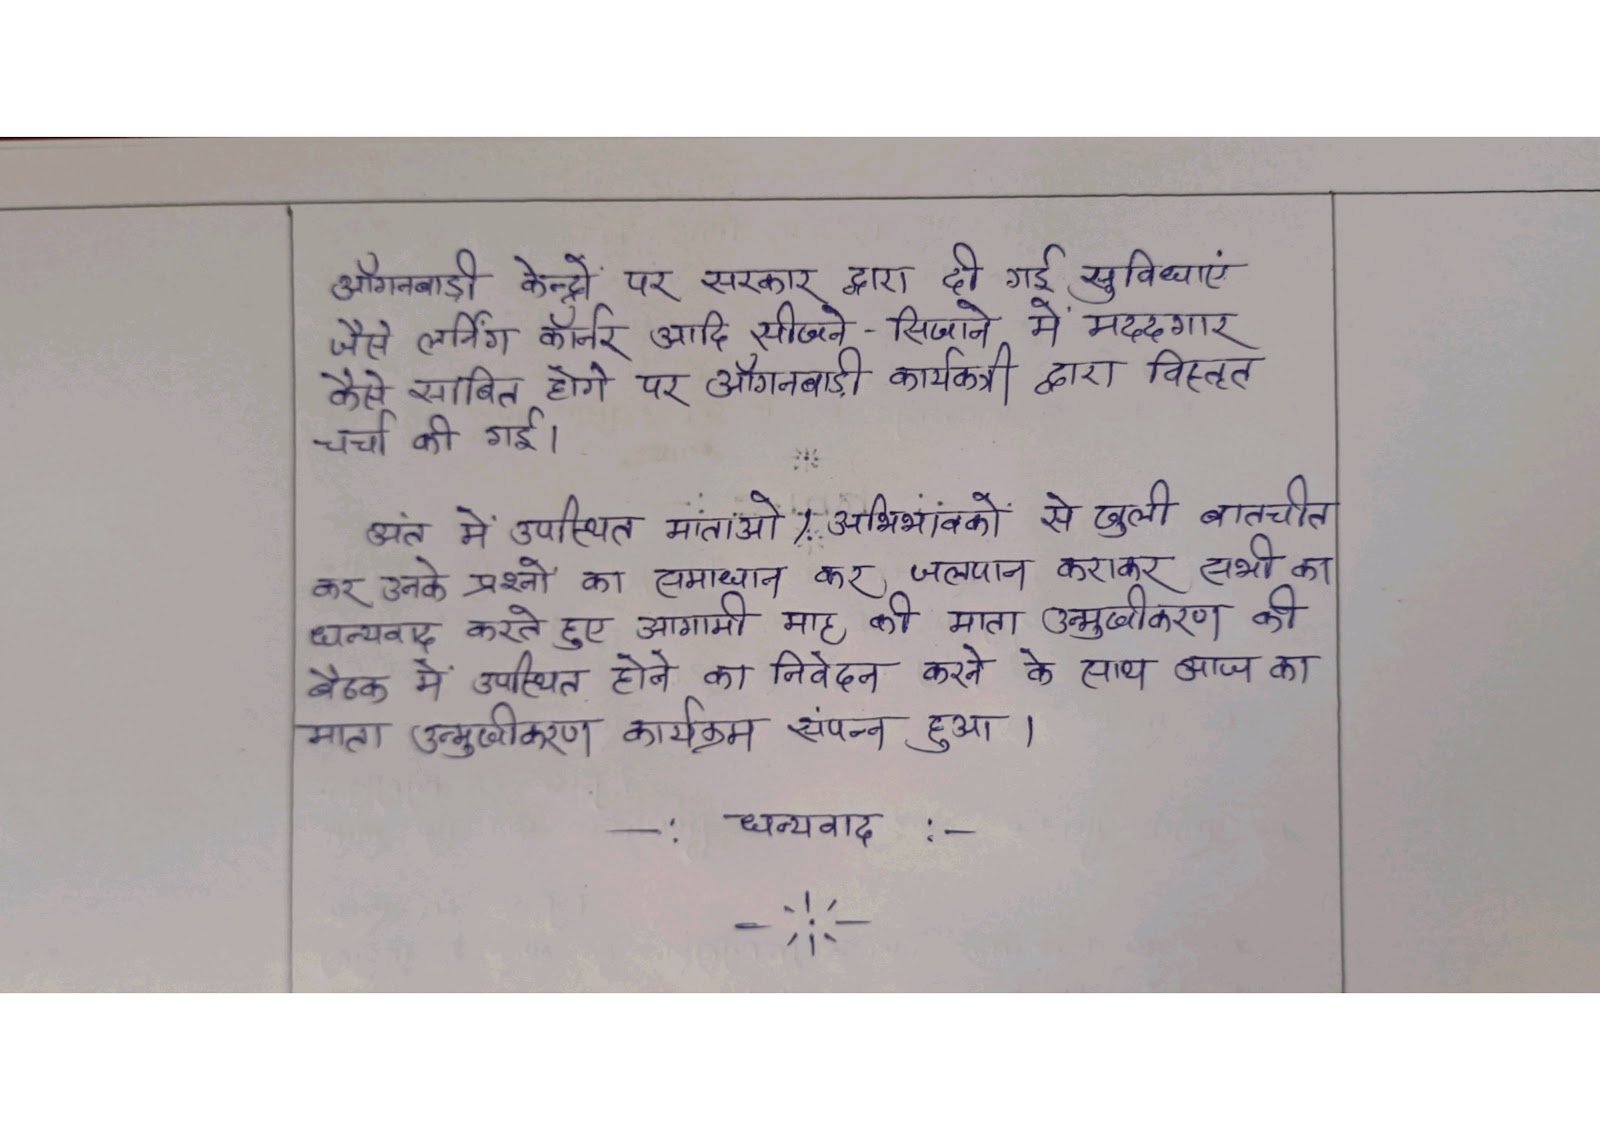 आँगनबाड़ी केन्द्रों पर सरकार द्वारा दी गई सुविधाएं
जैसे लर्निंग कॉर्नर आदि सीखने - सिखाने में मददगार
कैसे साबित होगे पर आँगनबाड़ी कार्यकत्री द्वारा विस्तृत
चर्चा की गई।
अंत में उपस्थित माताओं / अभिभावकों से खुली बातचीत
कर उनके प्रश्नों का समाधान कर जलपान कराकर सभी का
धन्यवाद करते हुए आगामी माह की माता उन्मुखीकरण की
बैठक में उपस्थित होने का निवेदन करने के साथ आज का
माता उन्मुखीकरण कार्यक्रम संपन्न हुआ।
—: धन्यवाद :—